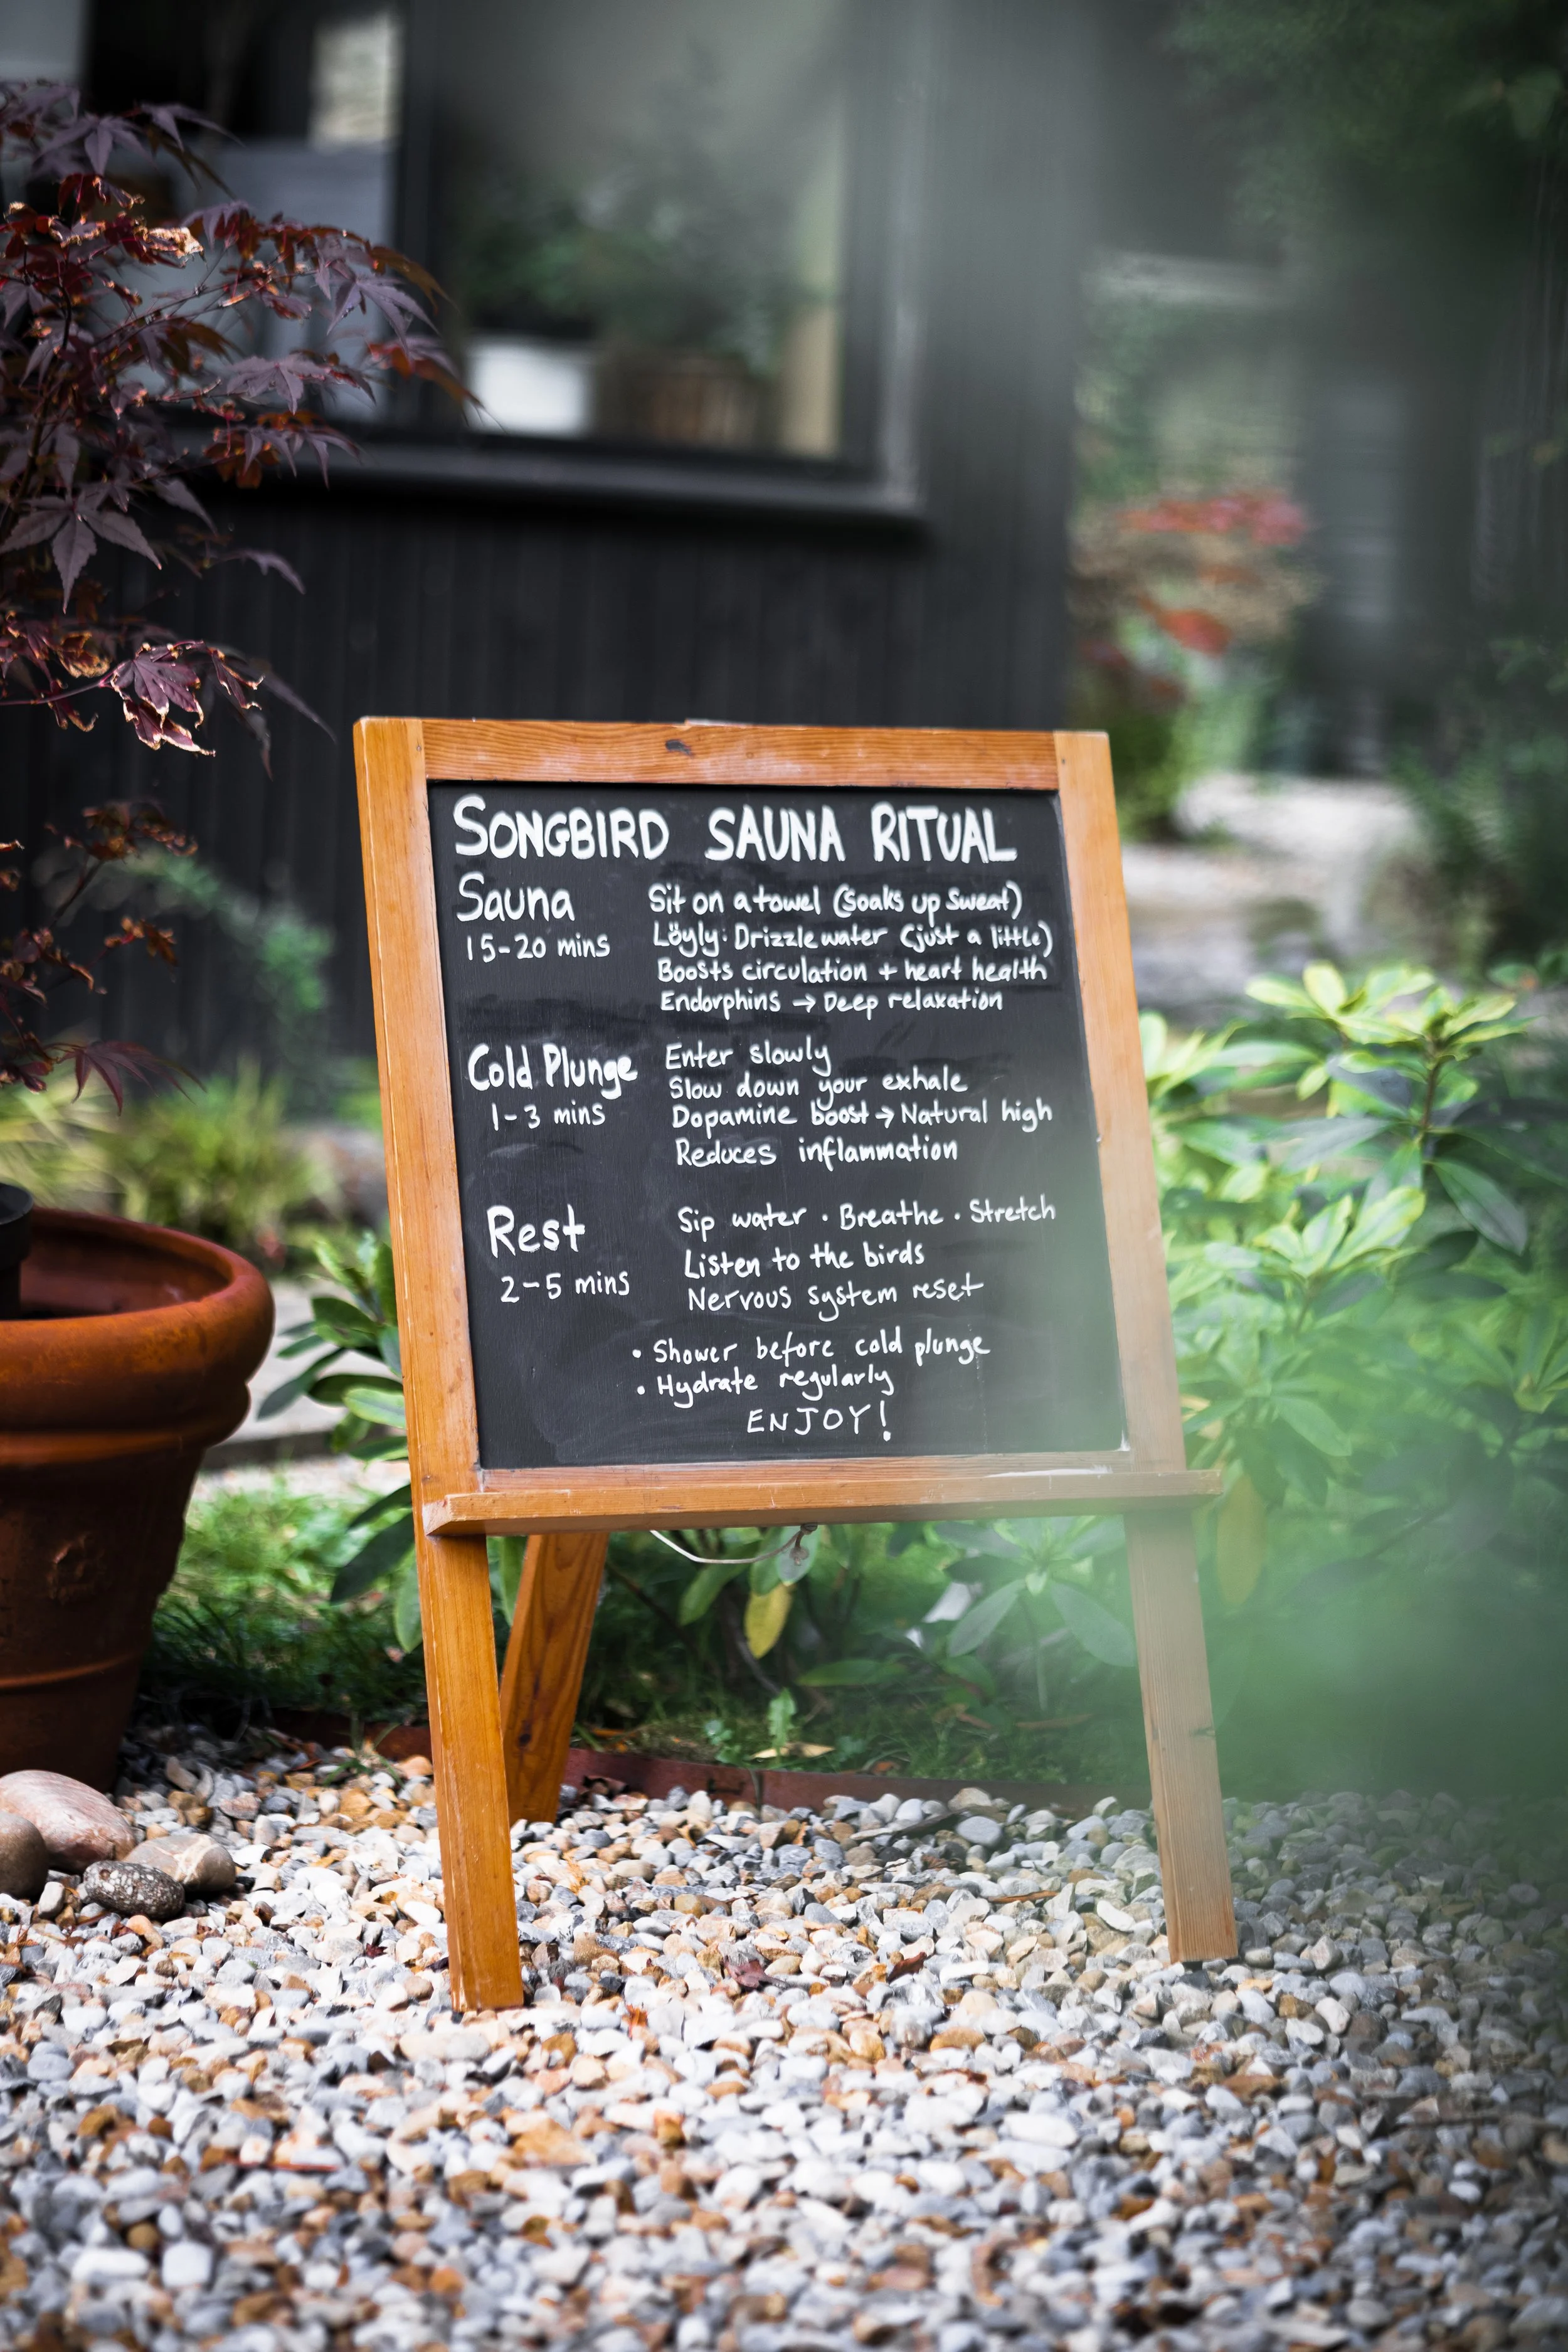 SONGBIRD SAUNA RITUAL
Sauna
15-20 mins
Sit on a towel (soaks up sweat)
Löyly: Drizzle water (just a little)
Boosts circulation + heart health
Endorphins → Deep relaxation
Cold Plunge
1-3 mins
Enter slowly
Slow down your exhale
Dopamine boost → Natural high
Reduces inflammation
Rest
2-5 mins
Sip water · Breathe · Stretch
Listen to the birds
Nervous system reset
• Shower before cold plunge
• Hydrate regularly
ENJOY!